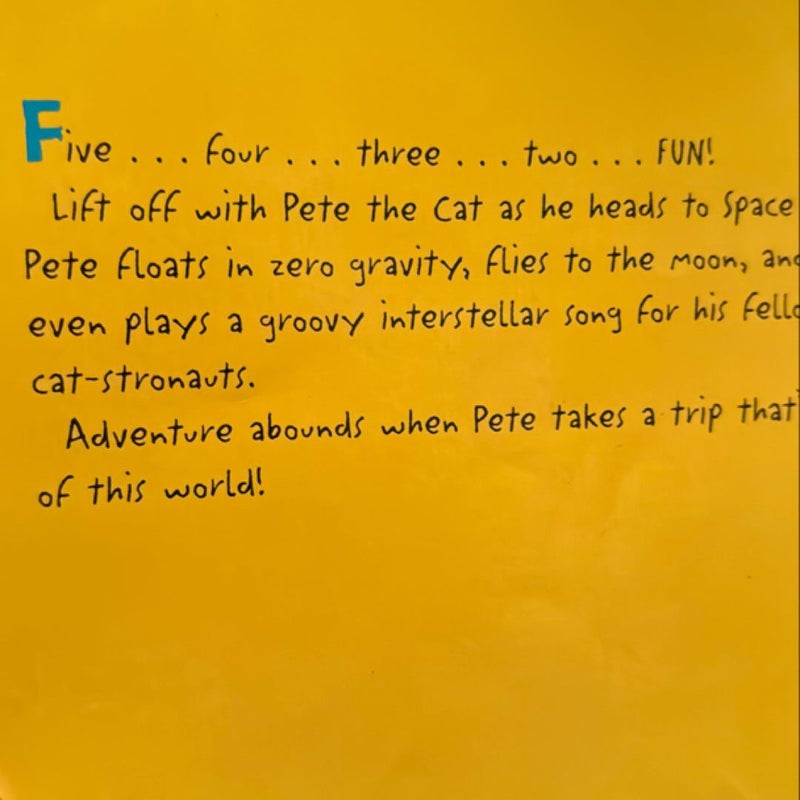 Five . . . four . . . three . . . two . . . FUN!
Lift off with Pete the Cat as he heads to Space
Pete floats in zero gravity, flies to the moon, and
even plays a groovy interstellar song for his fello
cat-stronauts.
Adventure abounds when Pete takes a trip that'
of this world!